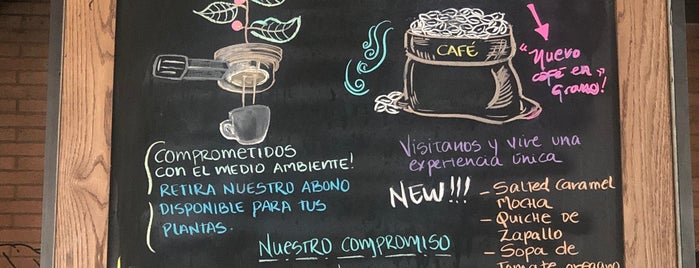 CAFÉ
"Nuevo
café en
Grano!"
COMPROMETIDOS
CON EL MEDIO AMBIENTE!
RETIRA NUESTRO ABONO
DISPONIBLE PARA TUS
PLANTAS.
Visitanos y vive una
experiencia única
NEW!!!
- Salted Caramel
Mocha
- Quiche de
Zapallo
- Sopa de
Tomate oregano
NUESTRO COMPROMISO